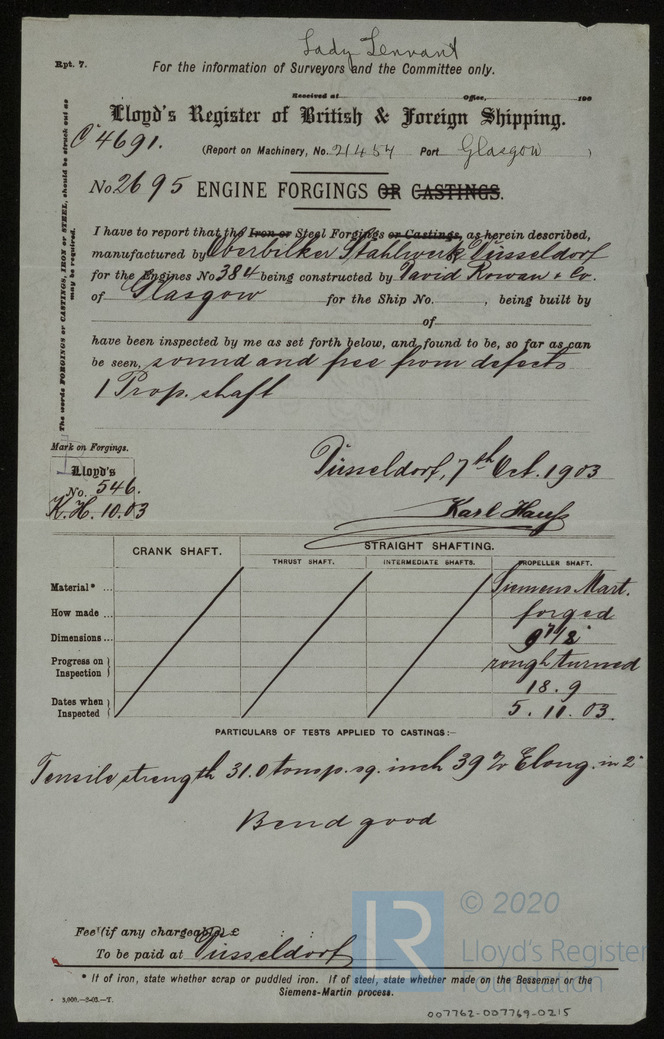 Lady Tennant
Rpt. 7.
For the information of Surveyors and the Committee only.
Received at Office, 190
Lloyd's Register of British & Foreign Shipping.
C 4691.
(Report on Machinery, No. 21454 Port Glasgow )
No 2695 ENGINE FORGINGS OR CASTINGS.
The words FORGINGS or CASTINGS, IRON or STEEL, should be struck out as
may be required.
I have to report that the Iron or Steel Forgings or Castings, as herein described,
manufactured by Oberbilker Stahlwerk Düsseldorf
for the Engines No 384 being constructed by David Rowan & Co.
of Glasgow for the Ship No. , being built by
of
have been inspected by me as set forth below, and found to be, so far as can
be seen, sound and free from defects
1 Prop. shaft
Mark on Forgings.
Lloyd's
No. 546.
K.H. 10.03
Düsseldorf, 7th Oct. 1903
Karl
CRANK SHAFT. STRAIGHT SHAFTING.
THRUST SHAFT. INTERMEDIATE SHAFTS. PROPELLER SHAFT.
Material* ... Siemens Mart.
How made ... forged
Dimensions ... 9 7/8"
Progress on Inspection } rough turned
18.9
Dates when Inspected } 5. 10. 03.
PARTICULARS OF TESTS APPLIED TO CASTINGS:—
Tensile strength 31.0 tons p. sq. inch 39% Elong. in 2"
Bend good
Fee (if any chargeable) £
To be paid at Düsseldorf
* If of iron, state whether scrap or puddled iron. If of steel, state whether made on the Bessemer or the
Siemens-Martin process.
3,000.—3-03.—T.
LR
© 2020
Lloyd's Register
Foundation
007762-007769-0215